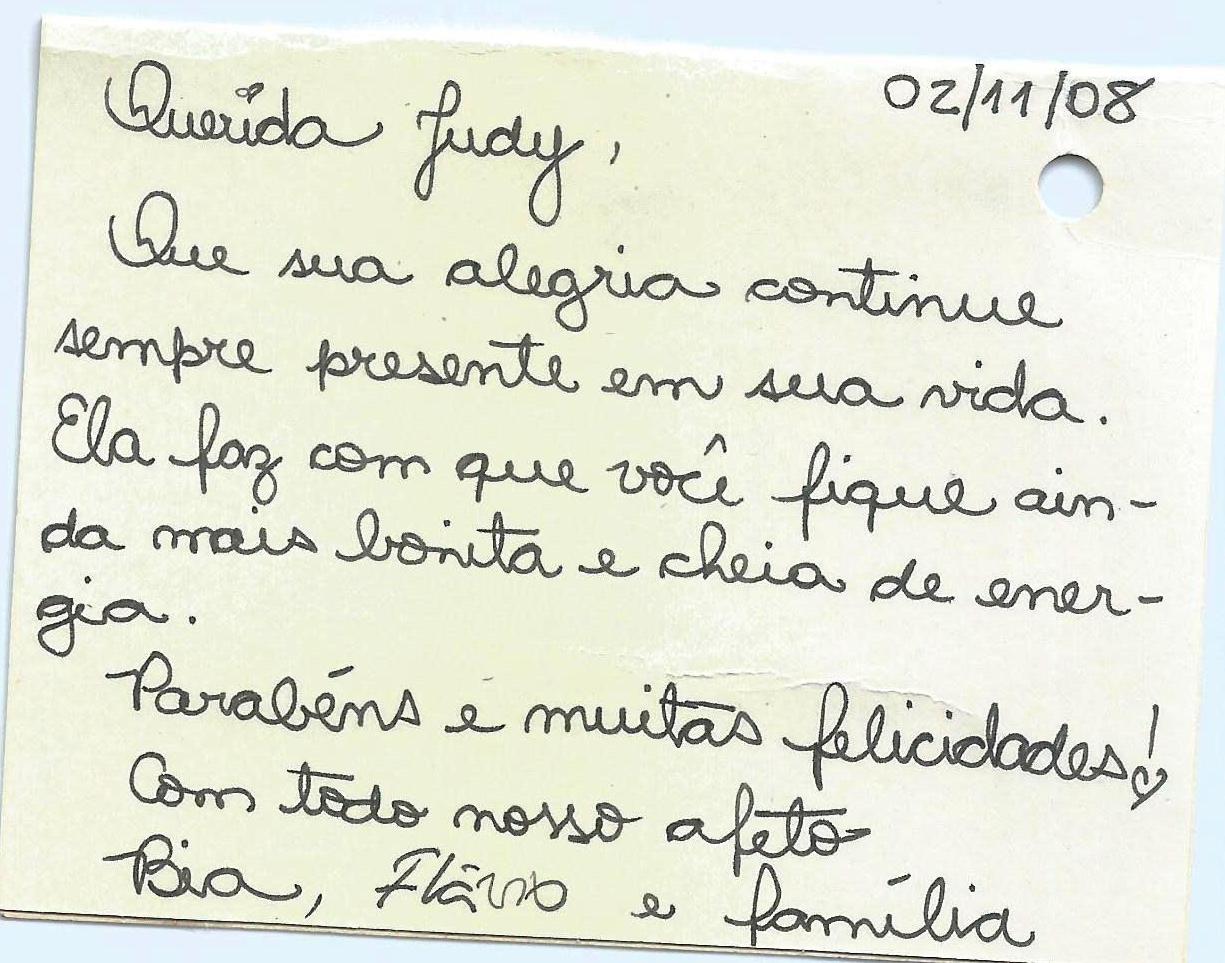 02/11/08
Querida Judy,
Que sua alegria continue
sempre presente em sua vida.
Ela faz com que você fique ain-
da mais bonita e cheia de ener-
gia.
Parabéns e muitas felicidades!
Com todo nosso afeto
Bia, Flávio e família